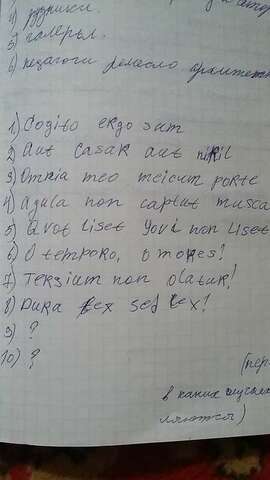 4) рудники.
5) галеры.
6) педагоги ремесло
1) Cogito ergo sum
2) Aut casar aut nihil
3) Omnia meo meicum porte
4) Agula non captut musca
5) Qvot liset Yovi non liset
6) O temporo, o mores!
7) Tersium non olatur!
8) Dura lex sed lex!
9) ?
10) ?
(пер-
в каких случаях